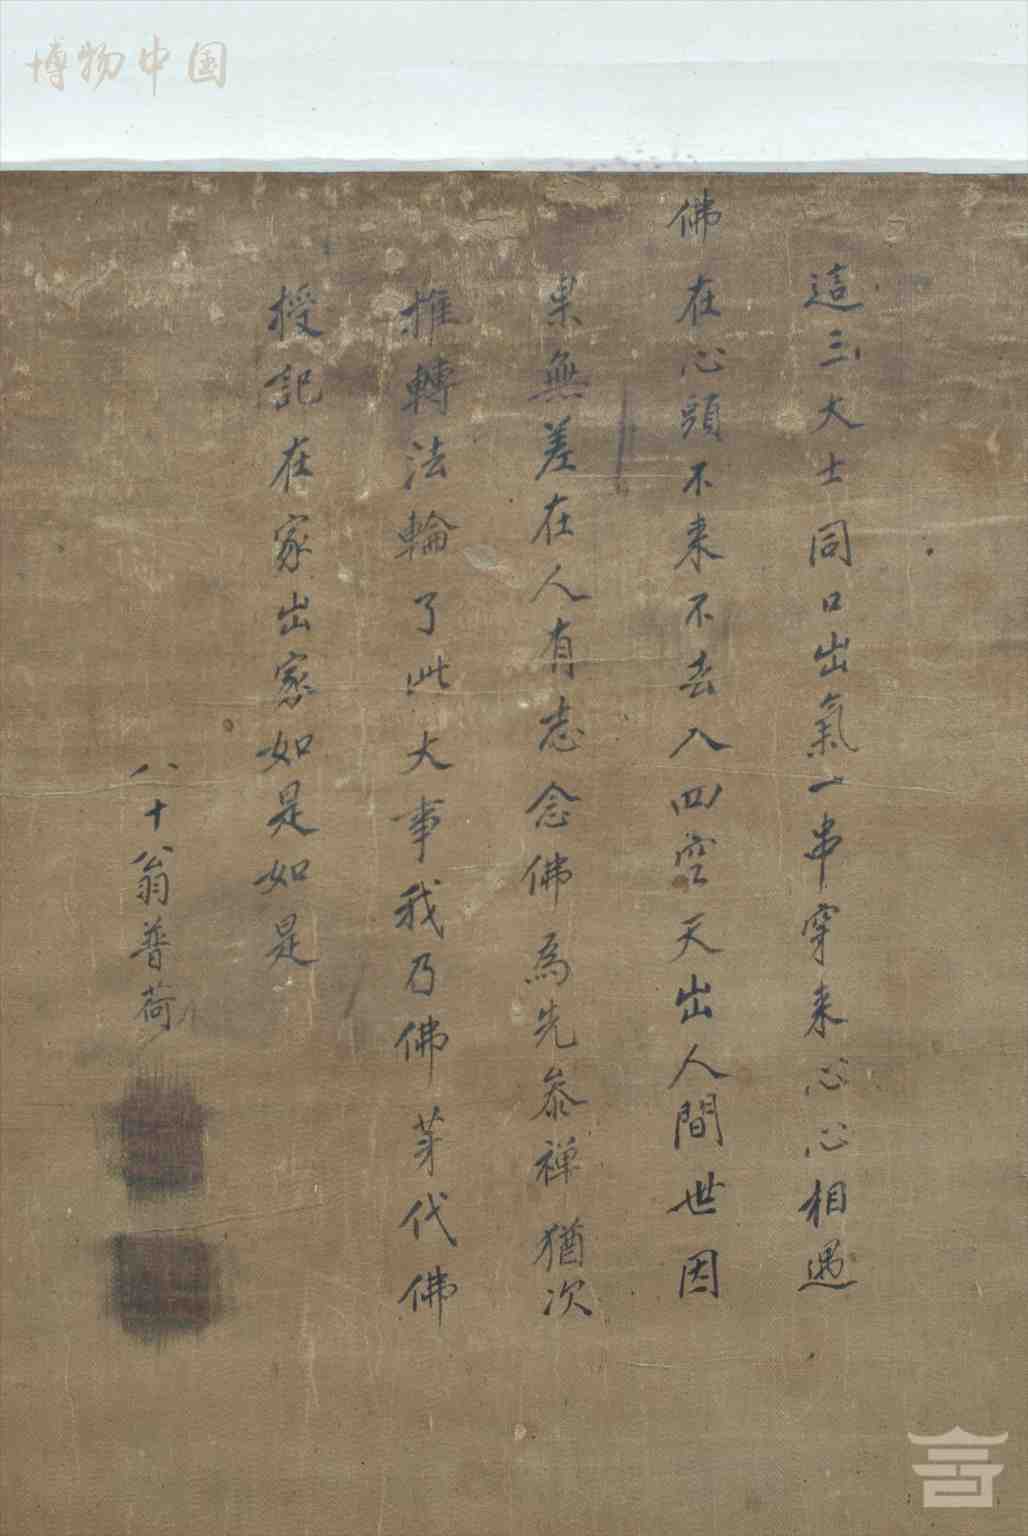 博物中国
這三大士同口出氣一串穿来心心相遇
佛在心頭不来不去入四空天出人間世因
果無差在人有志念佛為先叅禅猶次
推轉法輪了此大事我乃佛芽代佛
授記在家出家如是如是
八十翁普荷